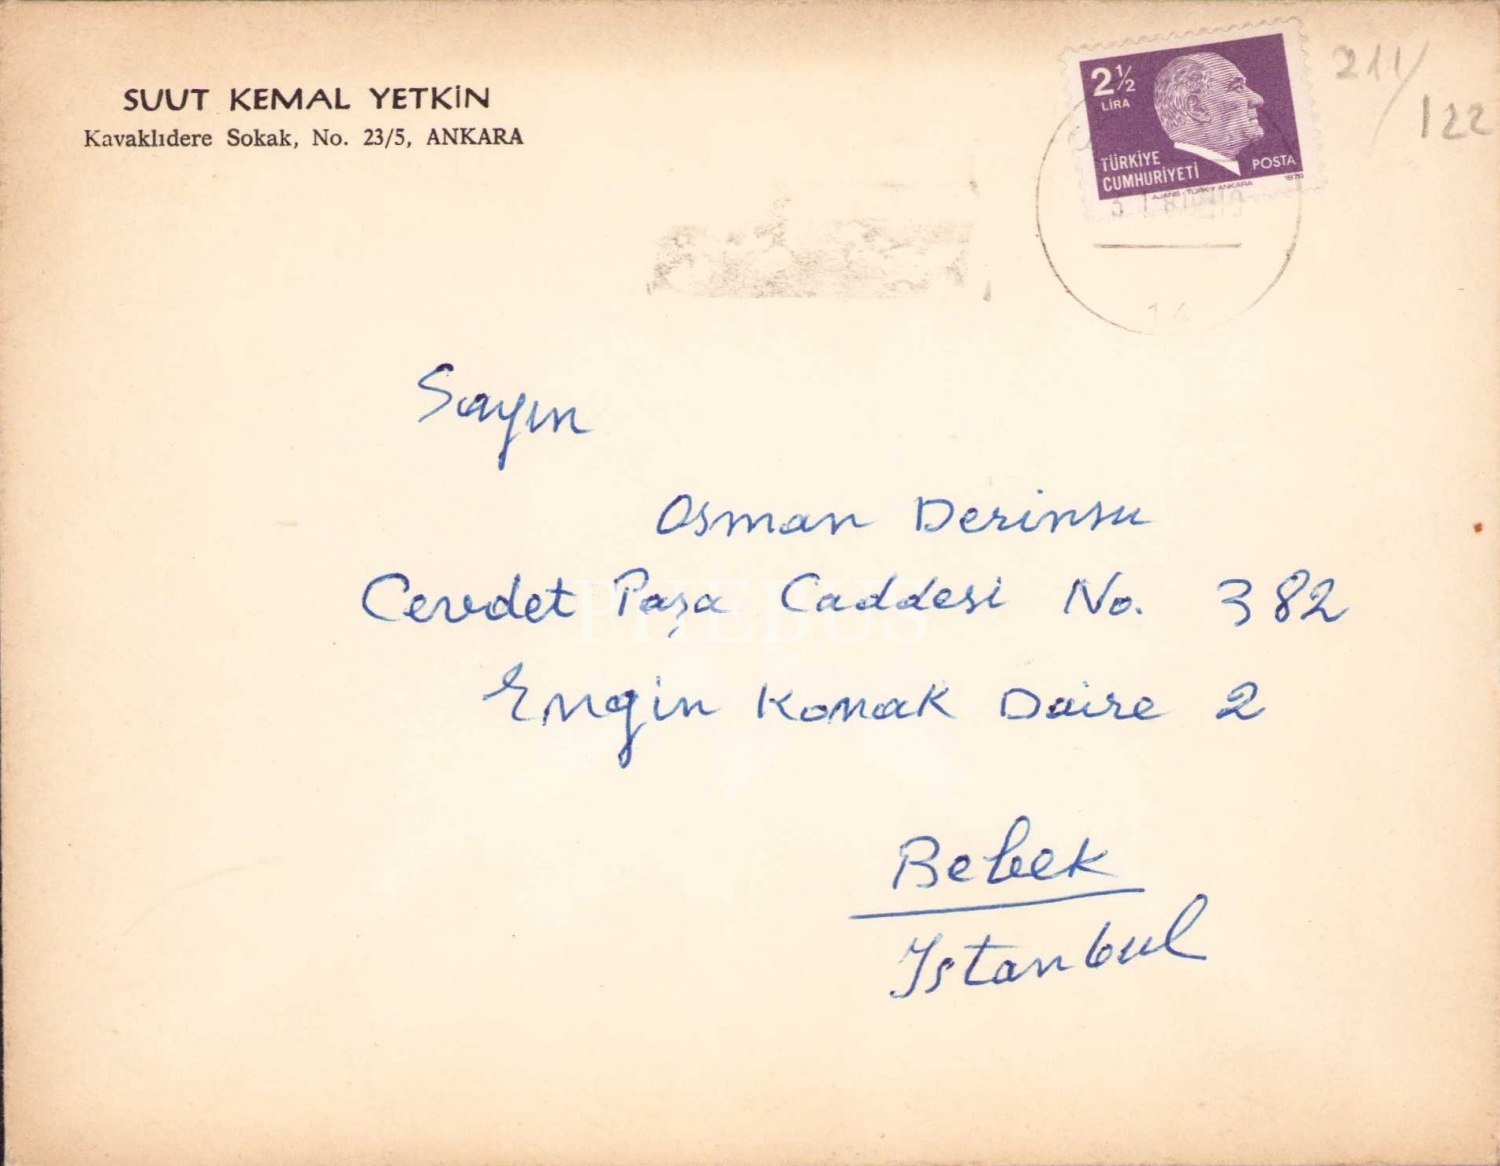 SUUT KEMAL YETKİN
Kavaklıdere Sokak, No. 23/5, ANKARA
2½
LİRA
TÜRKİYE
CUMHURİYETİ
POSTA
1979
AJANS-TÜRK/ANKARA
211/
122
Sayın
Osman Derinsu
Cevdet Paşa Caddesi No. 382
Engin Konak Daire 2
Bebek
Istanbul
PHEBUS